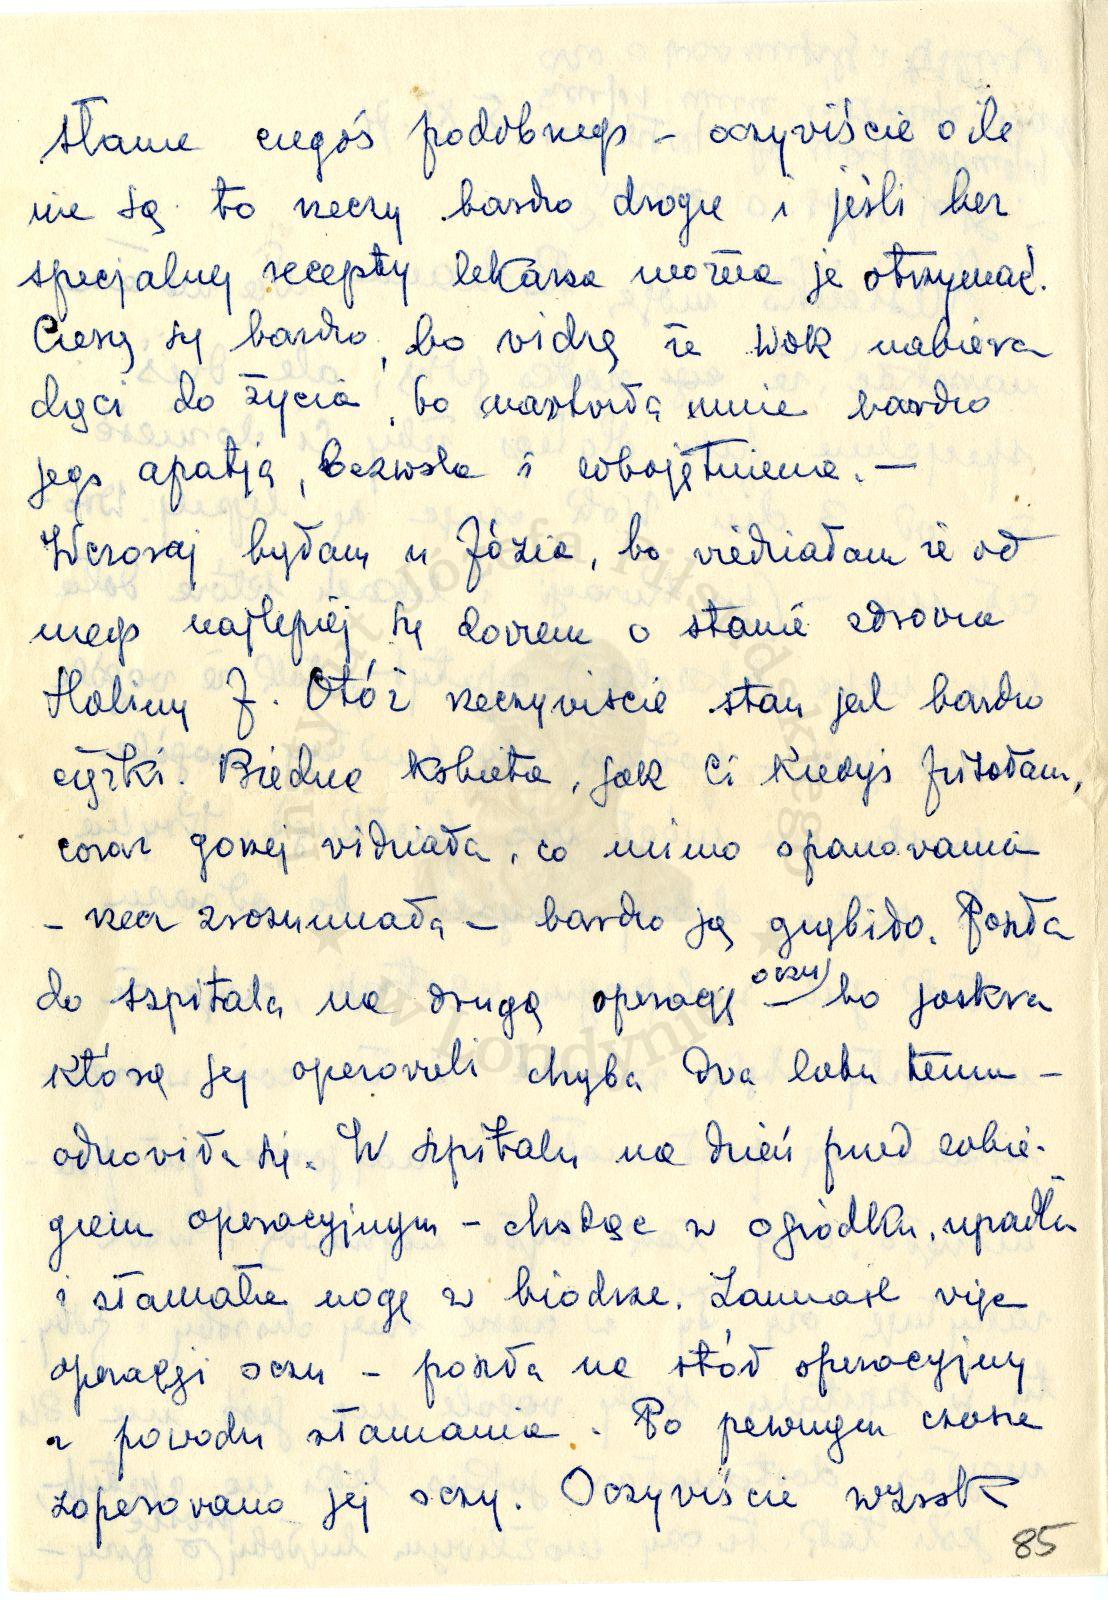 stanie czegoś podobnego – oczywiście o ile
nie są to rzeczy bardzo drogie i jeśli bez
specjalnej recepty lekarza można je otrzymać.
Cieszę się bardzo, bo widzę że Wok nabiera
chęci do życia, bo martwiła mnie bardzo
jego apatja, bezwola i zobojętnienie. –
Wczoraj byłam u Józia, bo wiedziałam że od
niego najlepiej się dowiem o stanie zdrowia
Haliny J. Otóż rzeczywiście stan jest bardzo
ciężki. Biedna kobieta, jak Ci kiedyś pisałam,
coraz gorzej widziała, co mimo opanowania
– rzecz zrozumiała – bardzo ją gnębiło. Poszła
do szpitala na drugą operację oczu, bo jaskra
którą jej operowali chyba dwa lata temu –
odnowiła się. W szpitalu na dzień przed zabie-
giem operacyjnym – chodząc w ogródku, upadła
i złamała nogę w biodrze. Zamiast więc
operacji oczu – poszła na stół operacyjny
z powodu złamania. Po pewnym czasie
zoperowano jej oczy. Oczywiście wzrok
85
Instytut Józefa Piłsudskiego
w Londynie